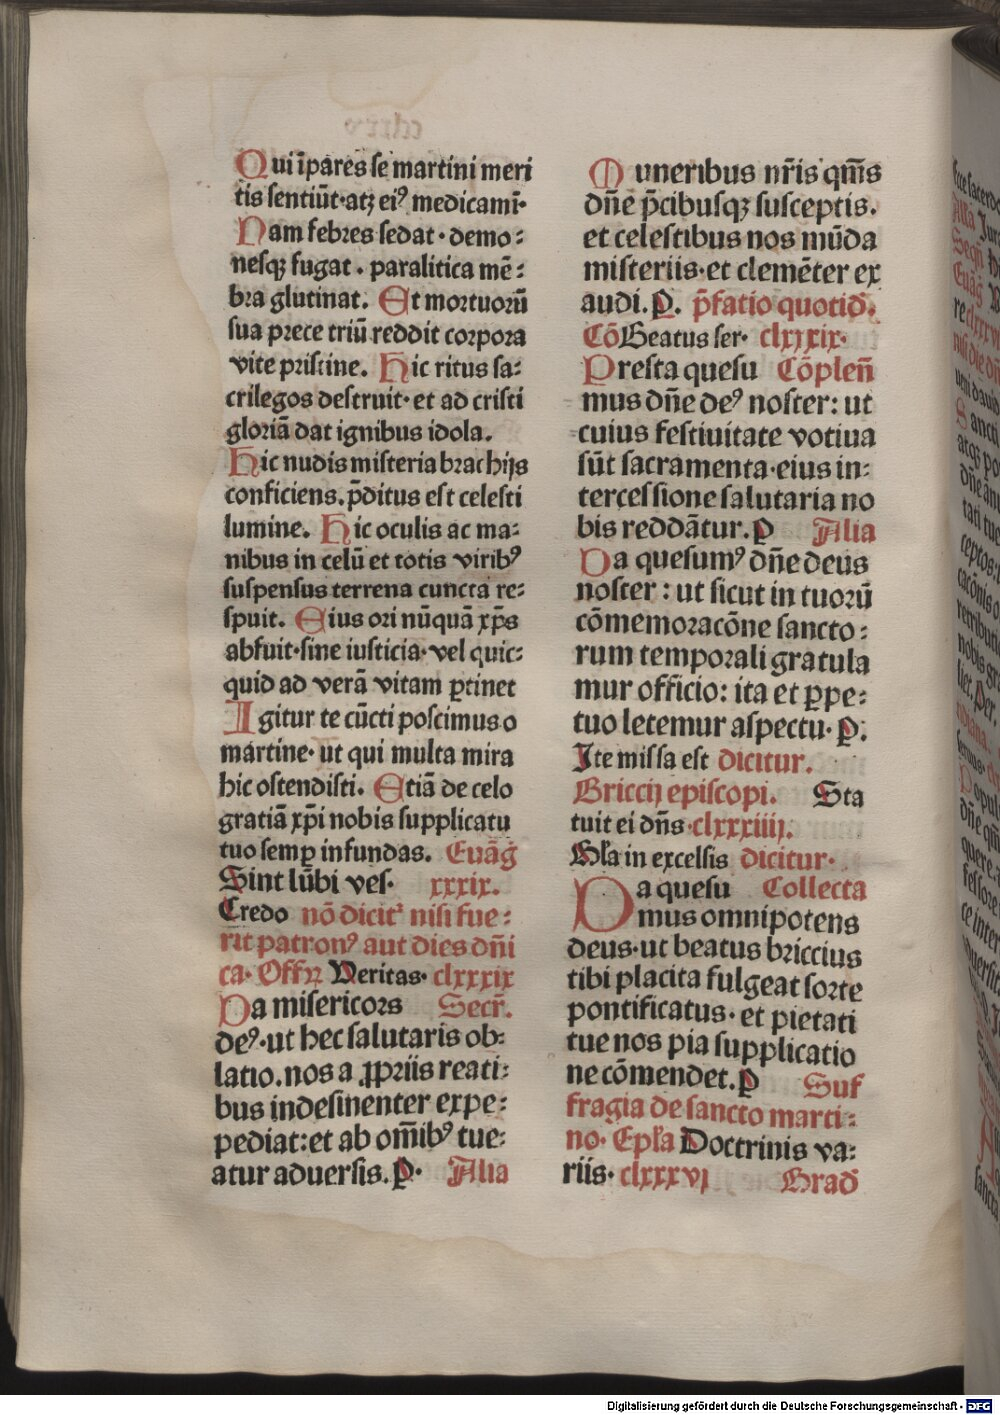 Qui īpares se martini meri
tis sentiūt·atqꝫ eiꝰ medicamī·
Nam febres sedat·demo⸗
nesqꝫ fugat. paralitica mē⸗
bra glutinat. Et mortuorū
sua prece triū reddit corpora
vite pristine. Hic ritus sa⸗
crilegos destruit·et ad cristi
gloriā dat ignibus idola.
Hic nudis misteria brachijs
conficiens. p̄ditus est celesti
lumine. Hic oculis ac ma⸗
nibus in celū et totis viribꝰ
suspensus terrena cuncta re⸗
spuit. Eius ori nūquā xp̄s
abfuit·sine iusticia·vel quic⸗
quid ad verā vitam ꝑtinet
Igitur te cūcti poscimus o
martine·ut qui multa mira
hic ostendisti. Etiā de celo
gratiā xp̄i nobis supplicatu
tuo semꝑ infundas. Euāḡ
Sint lūbi ves· xxxix.
Credo nō dicit᷑ nisi fue⸗
rit patronꝰ aut dies dn̄i
ca· Offꝝ Veritas· clxxxix
Da misericors Secr̄.
deꝰ·ut hec salutaris ob⸗
latio. nos a ꝓpriis reati⸗
bus indesinenter expe⸗
pediat:et ab om̄ibꝰ tue⸗
atur aduersis. P· Alia
Muneribus nr̄is qm̄s
dn̄e p̄cibusqꝫ susceptis.
et celestibus nos mūda
misteriis·et clemēter ex
audi. P. p̄fatio quotid̄.
Cō Beatus ser· clxxxix·
Presta quesu Cōplen̄
mus dn̄e deꝰ noster: ut
cuius festiuitate votiua
sūt sacramenta·eius in⸗
tercessione salutaria no
bis reddātur. P Alia
Da quesumꝰ dn̄e deus
noster: ut sicut in tuorū
cōmemoracōne sancto⸗
rum temporali gratula
mur officio: ita et ꝑpe⸗
tuo letemur aspectu· P.
Ite missa est dicitur.
Briccij episcopi. Sta
tuit ei dn̄s·clxxxiiij.
Gl̄a in excelsis dicitur·
Da quesu Collecta
mus omnipotens
deus·ut beatus briccius
tibi placita fulgeat sorte
pontificatus·et pietati
tue nos pia supplicatio
ne cōmendet. P Suf
fragia de sancto marti⸗
no· Epl̄a Doctrinis va⸗
riis· clxxxvj Grad̄
Digitalisierung gefördert durch die Deutsche Forschungsgemeinschaft - DFG